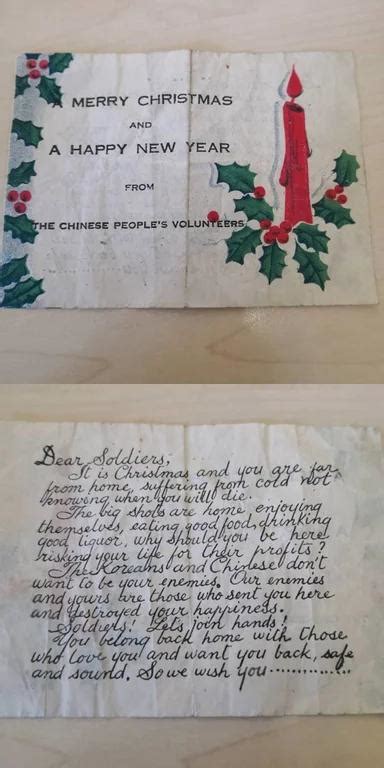 A MERRY CHRISTMAS
AND
A HAPPY NEW YEAR
FROM
THE CHINESE PEOPLE'S VOLUNTEERS
Dear Soldiers,
It is Christmas and you are far
from home, suffering from cold not
knowing when you will die.
The big shots are home, enjoying
themselves, eating good food, drinking
good liquor, why should you be here
risking your life for their profits?
The Koreans and Chinese don't
want to be your enemies. Our enemies
and yours are those who sent you here
and destroyed your happiness.
Soldiers! Let's join hands!
You belong back home with those
who love you and want you back, safe
and sound. So we wish you..............